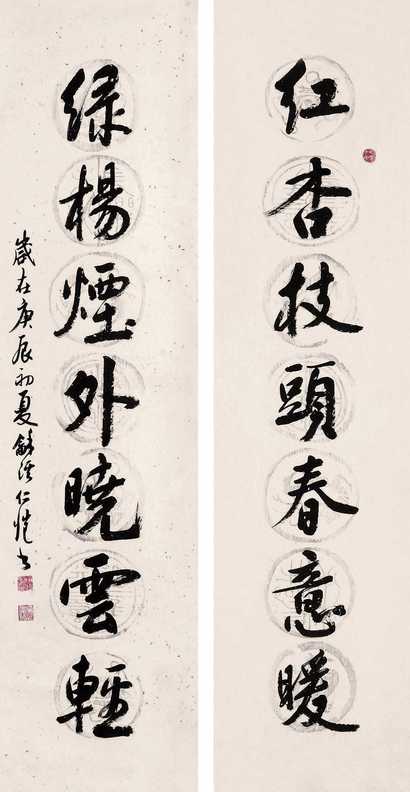 红杏枝頭春意暖
绿楊煙外曉雲輕
歲在庚辰初夏龢溪仁愷书